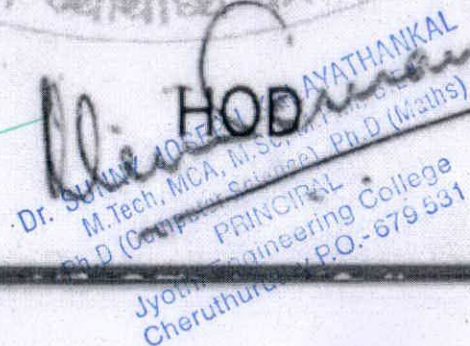 HOD
Dr. SUNNY JOSEPH KALAYATHANKAL
M.Tech, MCA, M.Sc,
Ph.D (Computer Science), Ph.D (Maths)
PRINCIPAL
Jyothi Engineering College
P.O.-679 531